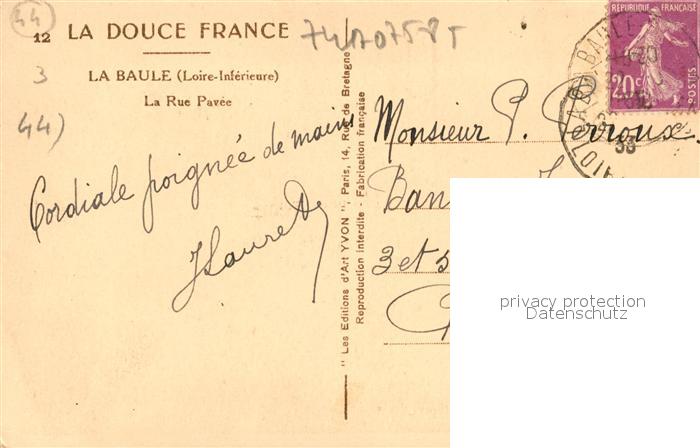 44
12 LA DOUCE FRANCE
74170758T
3
LA BAULE (Loire-Inférieure)
La Rue Pavée
44)
Cordiale poignée de mains
"Les Editions d'Art YVON", Paris, 14, Rue de Bretagne
Reproduction interdite - Fabrication française
REPUBLIQUE FRANÇAISE
20c
POSTES
LA BAULE
33
Monsieur P. Perroux.
Ban
3 et 5
privacy protection
Datenschutz